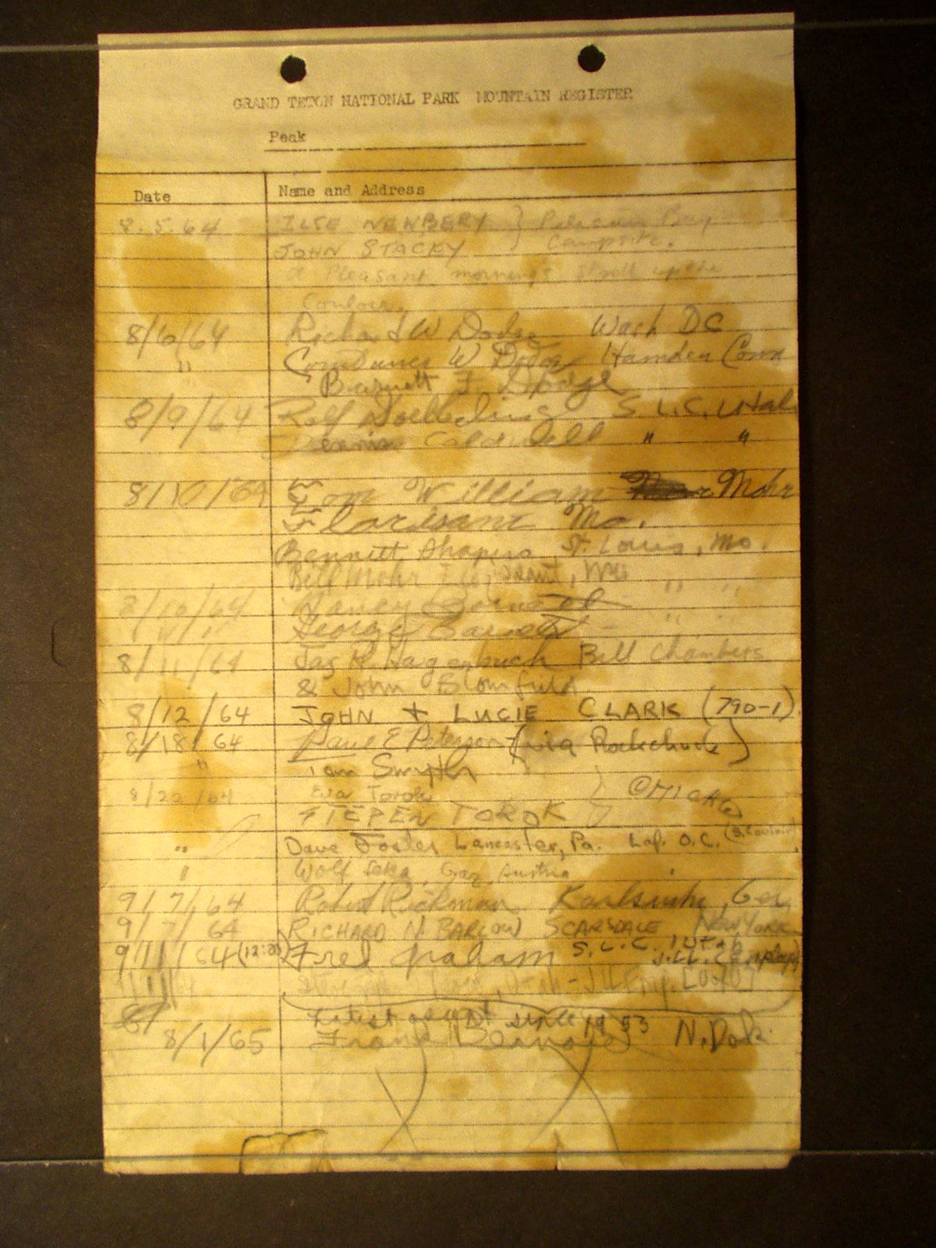 GRAND TETON NATIONAL PARK MOUNTAIN REGISTER
Peak
Date Name and Address
8.5.64 ILSE NEWBERY } Pelican Bay
JOHN STACKY Campsite.
A Pleasant mornings stroll up the
Couloir.
8/6/64 Richard W Dodge Wash DC
" Constance W. Dodge Hamden Conn
F. Dodge
8/9/64 Rolf S.L.C. Utah
Caldwell " "
8/10/64 Tom William Mohr
Florissant Mo.
Bennett Shapiro, St. Louis, Mo.
Bill Mohr Florissant, Mo " "
8/10/64 Nancy " "
George
8/11/64 Jas R. Hagenbuch Bill Chambers
& John Blomfield
8/12/64 JOHN + LUCIE CLARK (790-1)
8/18/64 Paul E Peterson (via Rockchuck)
" Tom Smyth
8/20/64 Eva Torok }
STEPEN TOROK } CHICAGO
" Dave Foster Lancaster, Pa. Laf. O.C.
" Wolf Graz, Austria
9/7/64 Robert Rickman Karlsruhe, Ger.
9/7/64 RICHARD N. BARLOW SCARSDALE NEW YORK
9/11/64 (12:30) Fred Graham S.L.C. Utah
Utah
Latest ascent since 1953
8/1/65 Frank N. Dak.